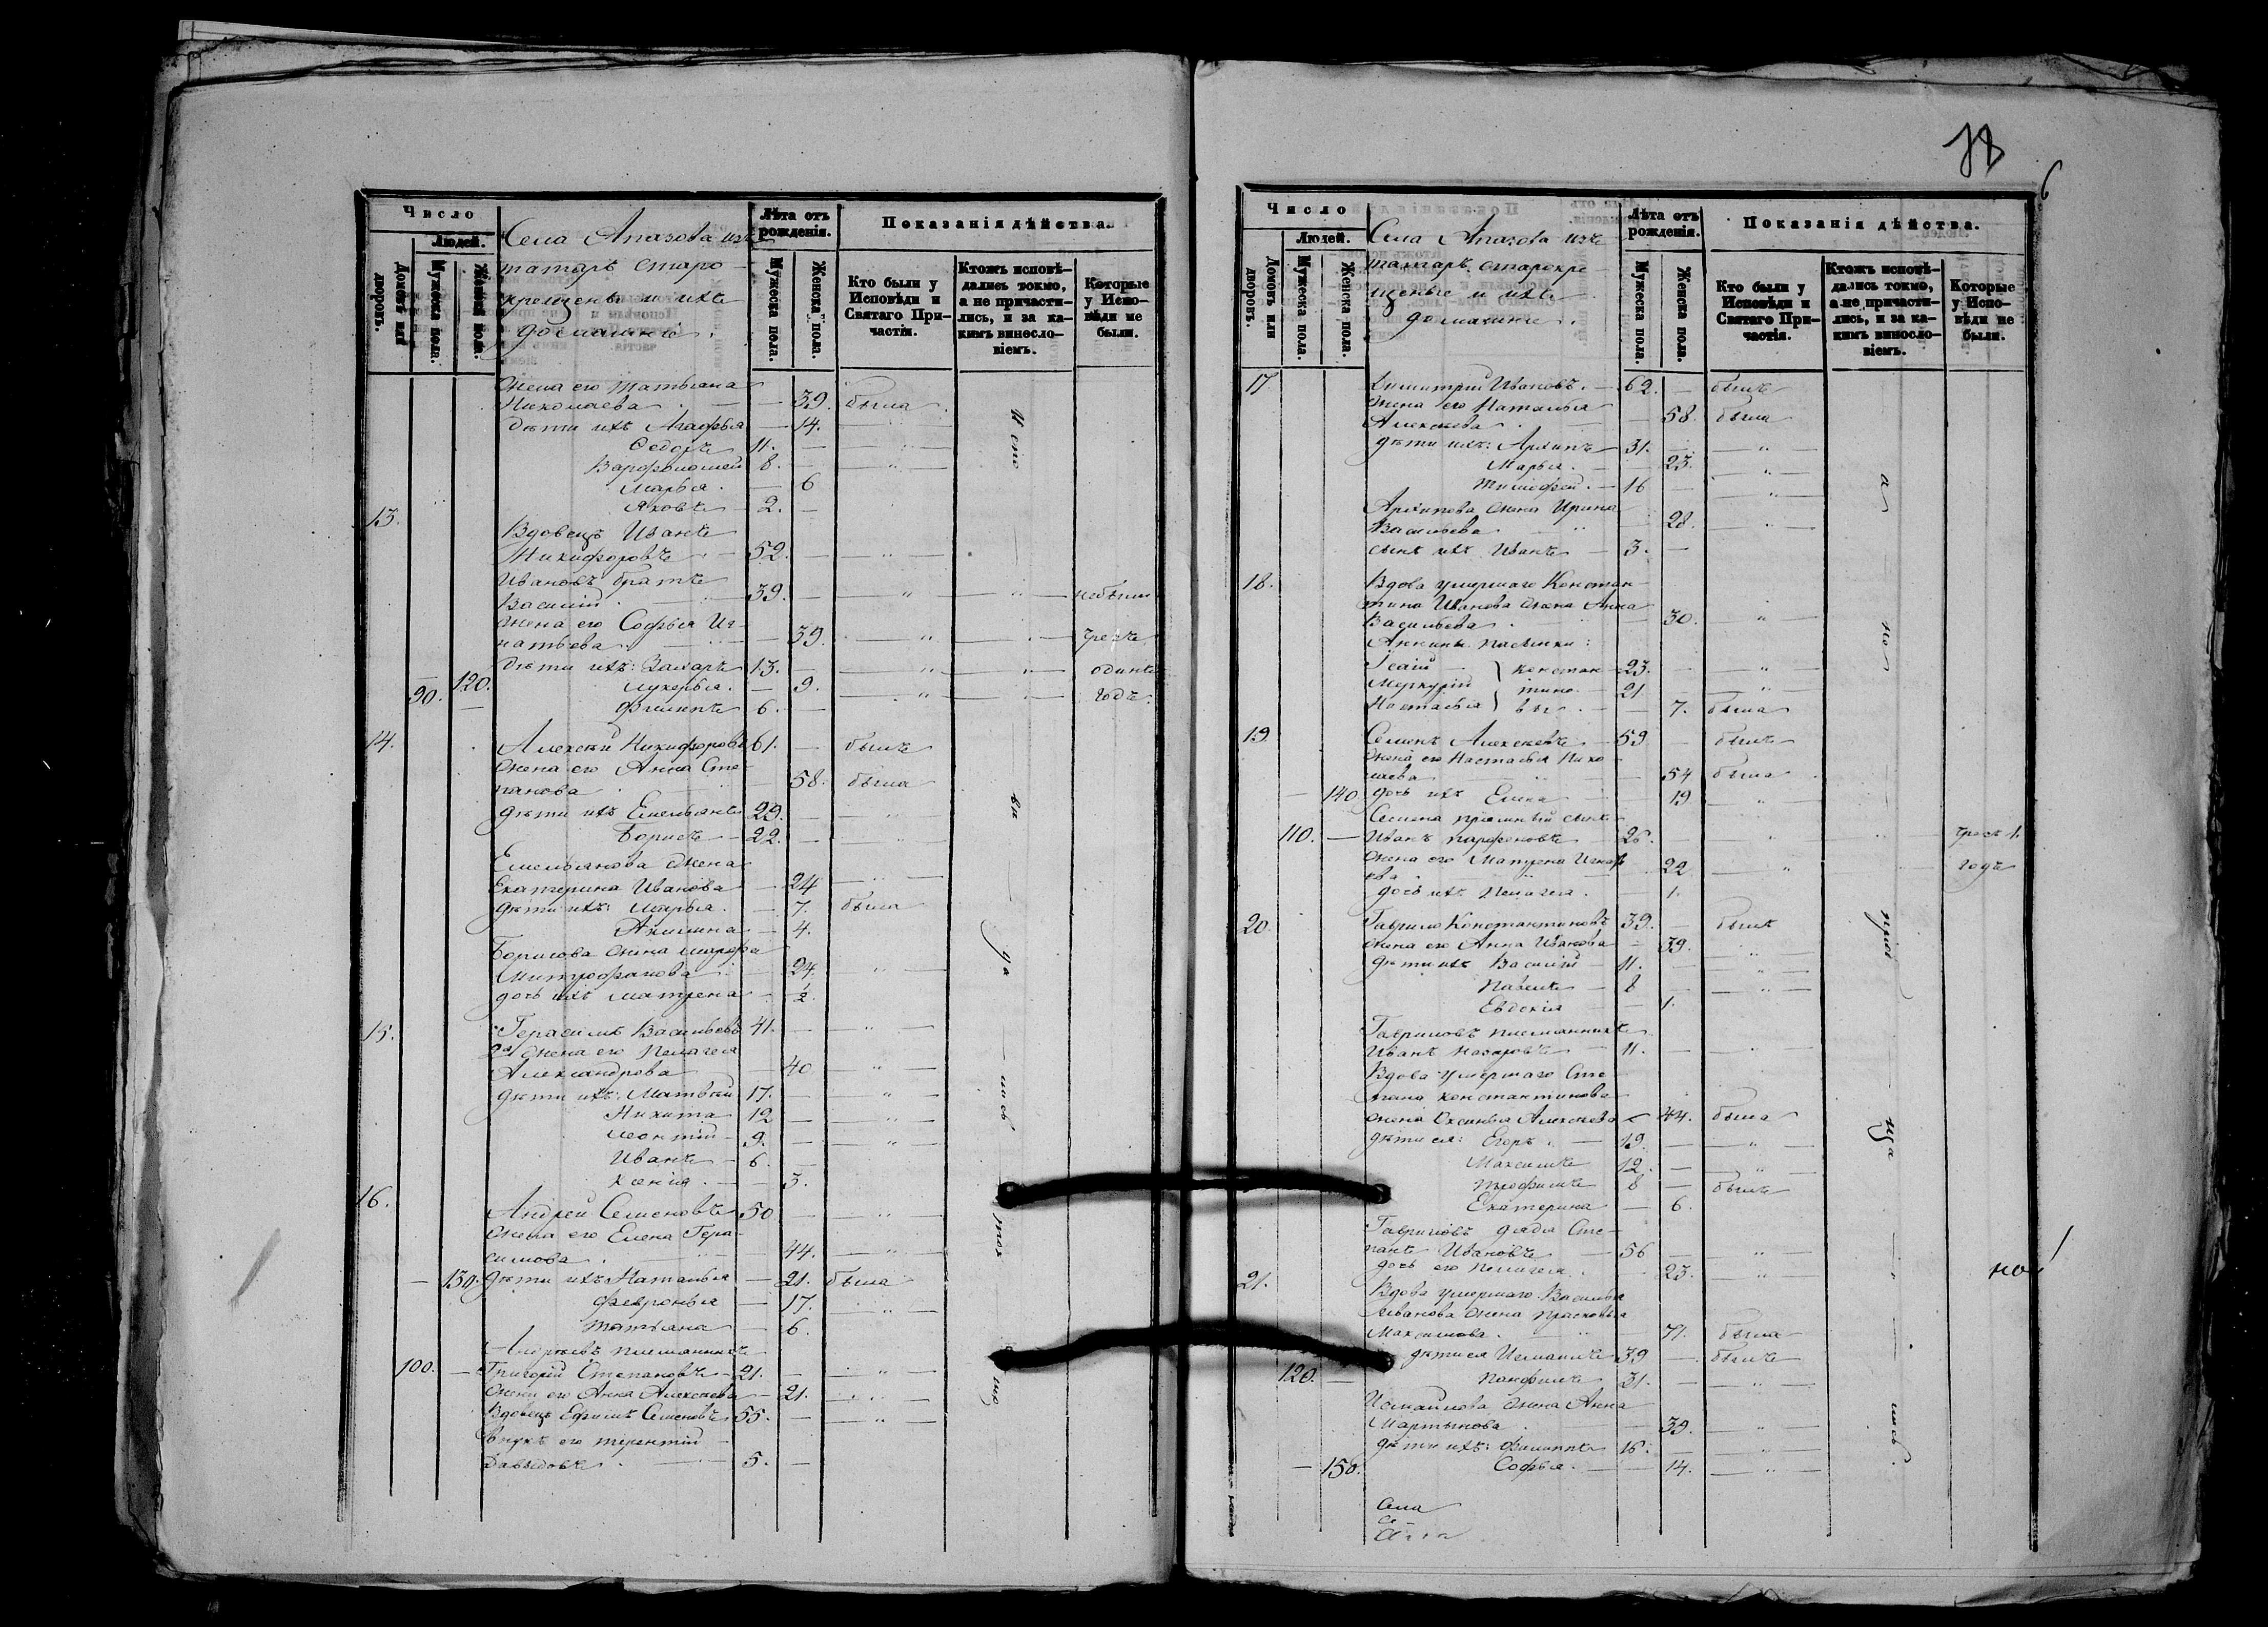 Число
Людей.
Домовъ или дворовъ.
Мужеска пола.
Женска пола.
Села Апазова изъ
татаръ старо-
крещены и ихъ
домашніе.
Лѣта отъ рожденія.
Мужеска пола.
Женска пола.
Показанія дѣйства.
Кто были у Исповѣди и Святаго Причастія.
Ктожъ исповѣдались токмо, а не причастились, и за какимъ винословіемъ.
Которые у Исповѣди не были.
Жена его Татьяна
Николаева — 39. была
дѣти ихъ Агафья — 14. "
Ѳедоръ 11. — "
Варфоломей 8. — "
Марья. — 6
Яковъ — 2. —
13.
Вдовецъ Иванъ
Никифоровъ — 52. — "
Ивановъ братъ
Василій. 39. — " — " — небыли
Жена его Софья Иг-
натьева. — 39. — " — " — чрезъ
Дѣти ихъ: Захаръ 13. — " — " — одинъ
90. 120. Лукерья. — 9. — " — " — годъ.
Филипъ 6. —
14. Алексѣй Никифоровъ 61. — былъ
Жена его Анна Сте-
панова — 58. была
дѣти ихъ Емельянъ 29. — "
Борисъ — 22. — "
Емельянова жена
Екатерина Иванова — 24 — "
дѣти ихъ: Марья. — 7. была
Акилина — 4.
Борисова жена Марѳа
Митрофанова — 24. "
дочь ихъ Матрена — 1/2.
15. Герасимъ Васильевъ 41. — "
2я жена его Пелагея
Александрова — 40 "
дѣти ихъ: Матвѣй 17. — "
Никита 12 — "
Леонтій — 9. — "
Иванъ — 6. —
Ксенія. — 3.
16.
Андрей Семеновъ 50 — "
Жена его Елена Гера-
симова. 44. — "
130. дѣти ихъ: Наталья — 21. была
Февронья — 17. "
Татьяна — 6.
Андреевъ племянникъ
100. — Григорій Степановъ — 21. — "
Жена его Анна Алексѣева — 21. — "
Вдовецъ Ефимъ Семеновъ 55. — "
Внукъ его Терентій
Давыдовъ. — 5. —
Испо
вы
ya
лись
тох
78
6
Число
Людей.
Домовъ или дворовъ.
Мужеска пола.
Женска пола.
Села Апазова изъ
татаръ старокре-
щеные и ихъ
домашніе.
Лѣта отъ рожденія.
Мужеска пола.
Женска пола.
Показанія дѣйства.
Кто были у Исповѣди и Святаго Причастія.
Ктожъ исповѣдались токмо, а не причастились, и за какимъ винословіемъ.
Которые у Исповѣди не были.
17 Димитрій Ивановъ. — 62. — былъ
Жена его Наталья
Алексѣева. — 58. была
дѣти ихъ: Архипъ — 31. — "
Марья. — 23. "
Тимофей. — 16 — "
Архипова жена Ирина
Васильева. — 28. "
сынъ ихъ Иванъ — 3. —
18. Вдова умершаго Констан-
тина Иванова жена Анна
Васильева. — 30. "
Аннины пасынки:
Исаій } Констан- 23. — "
Меркурій } тино- 21 — "
Настасья } вы. — 7. была
19 Семенъ Алексѣевъ — 59 — былъ
Жена его Настасья Нико-
лаева — 54 была
140 дочь ихъ Елена — 19 "
Семена пріемный сынъ
110. — Иванъ Парфеновъ — 26. — " чрезъ 1.
Жена его Матрена — 22 " годъ
дочь ихъ Пелагея. — 1.
20 Гаврило Константиновъ 39. — былъ
Жена его Анна Иванова — 39. "
дѣти ихъ Василій — 11. — "
Павелъ — 8 — "
Евдокія — 1.
Гавриловъ племянникъ
Иванъ Назаровъ — 11. — "
Вдова умершаго Сте-
пана Константинова
жена Оксинья Алексѣева — 44. была
дѣти ея: Егоръ. — 19. — "
Максимъ 12. — "
Трофимъ 8 — былъ
Екатерина — 6.
Гавриловъ дядя Сте-
панъ Ивановъ — 56 — "
дочь его Пелагея. — 23. "
21. Вдова умершаго Василья
Иванова жена Прасковья
Максимова. — 71. была
дѣти ея Исмаилъ 39 — былъ
120. — Панфилъ — 31. — "
Исмаилова жена Анна
Мартынова. — 39. "
дѣти ихъ: Филиппъ 16. — "
150. Софья. — 14. "
а
но
при
ща
лись.
но
Села